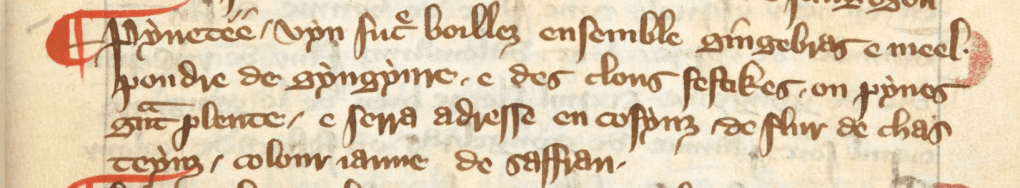 Pynetéé / vyn sucre boillez ensemble gingebras e meel.
poudre de gyngyure. e des clous festikes. ou pynes
gnt plente / e serra adresse en cofynz. de flur de chas
teynz / colour iaune de saffran.